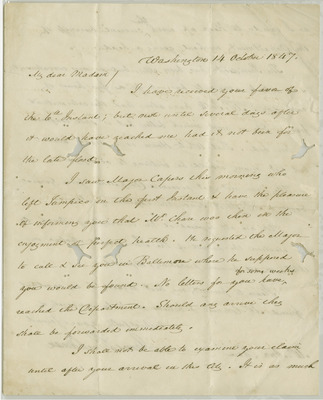 Washington 14 October 1847.
My dear Madam/
I have received your favor of
the 6th Instant; but not until several days after
it would have reached me had it not been for
the late flood.
I saw Major Capers this morning who
left Tampico on the first Instant & have the pleasure
of informing you that Mr. Chase was then in the
enjoyment of perfect health. He requested the Major
to call & see you in Baltimore where he supposed
you would be found. No letters for you have,
for some weeks,
reached the Department. Should any arrive they
shall be forwarded immediately.
I shall not be able to examine your claim
until after your arrival in this City. It is as much